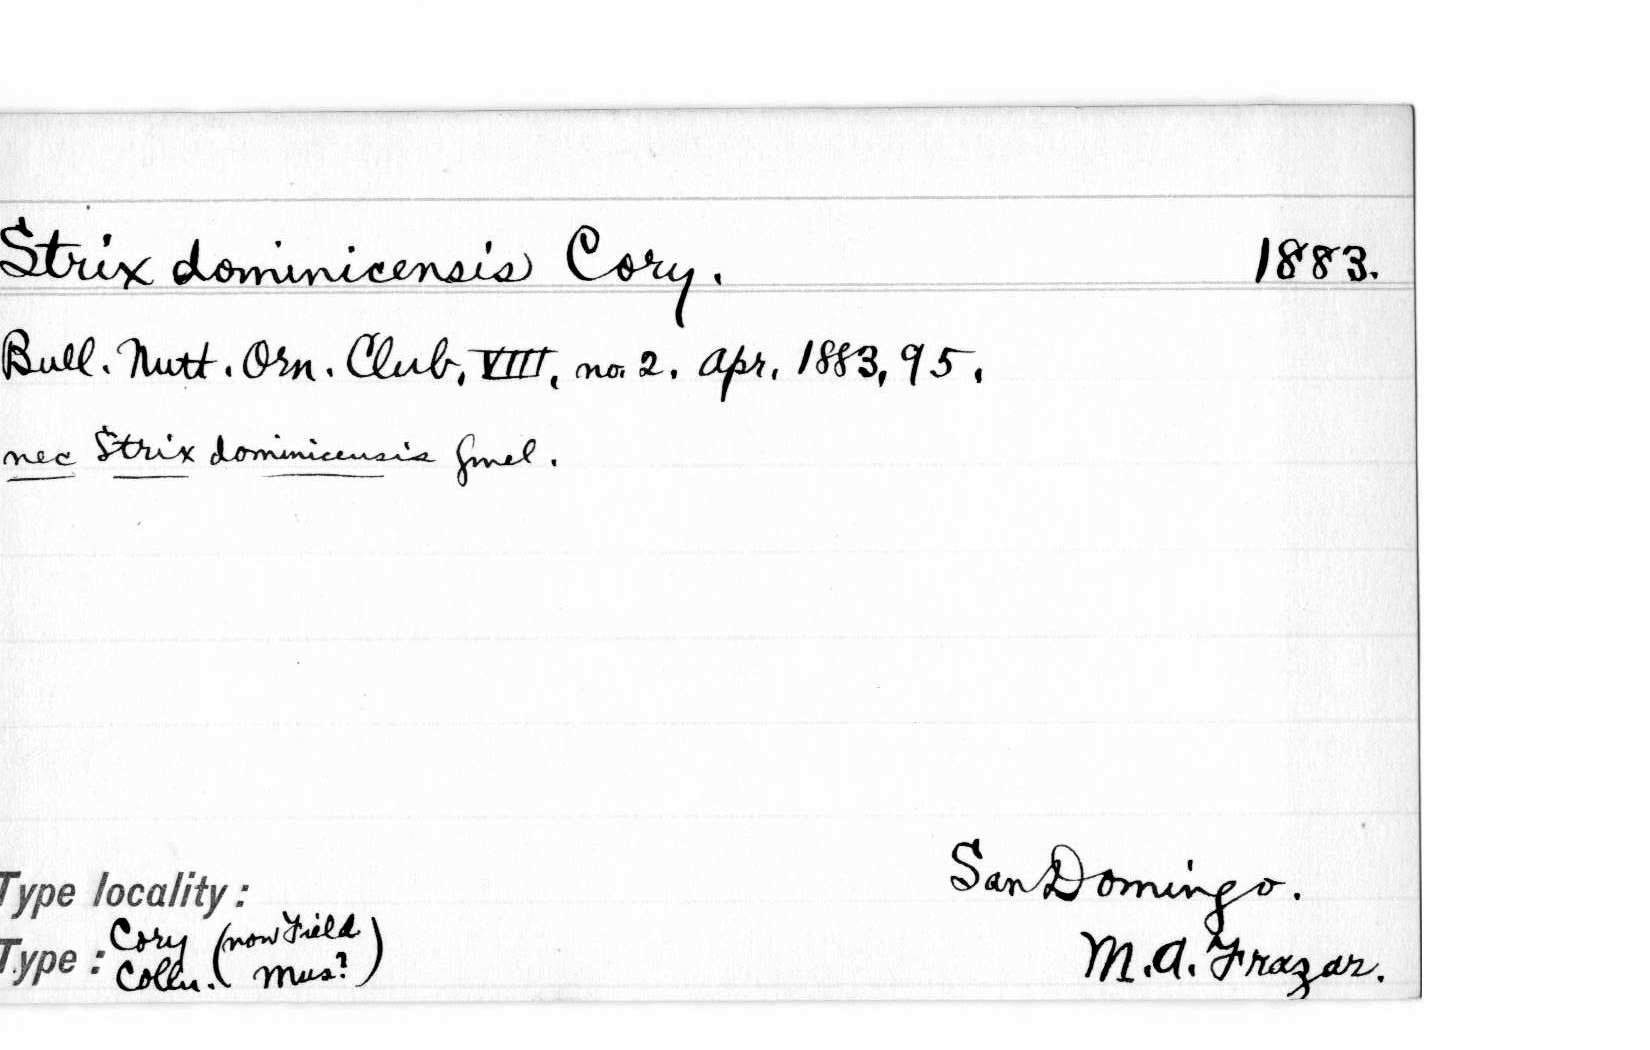 Strix dominicensis Cory. 1883.
Bull. Nutt. Orn. Club, VIII, no. 2. Apr. 1883, 95.
nec Strix dominicensis Gmel.
Type locality: San Domingo.
Type: Cory Colln. (now Field Mus?) M. A. Frazar.